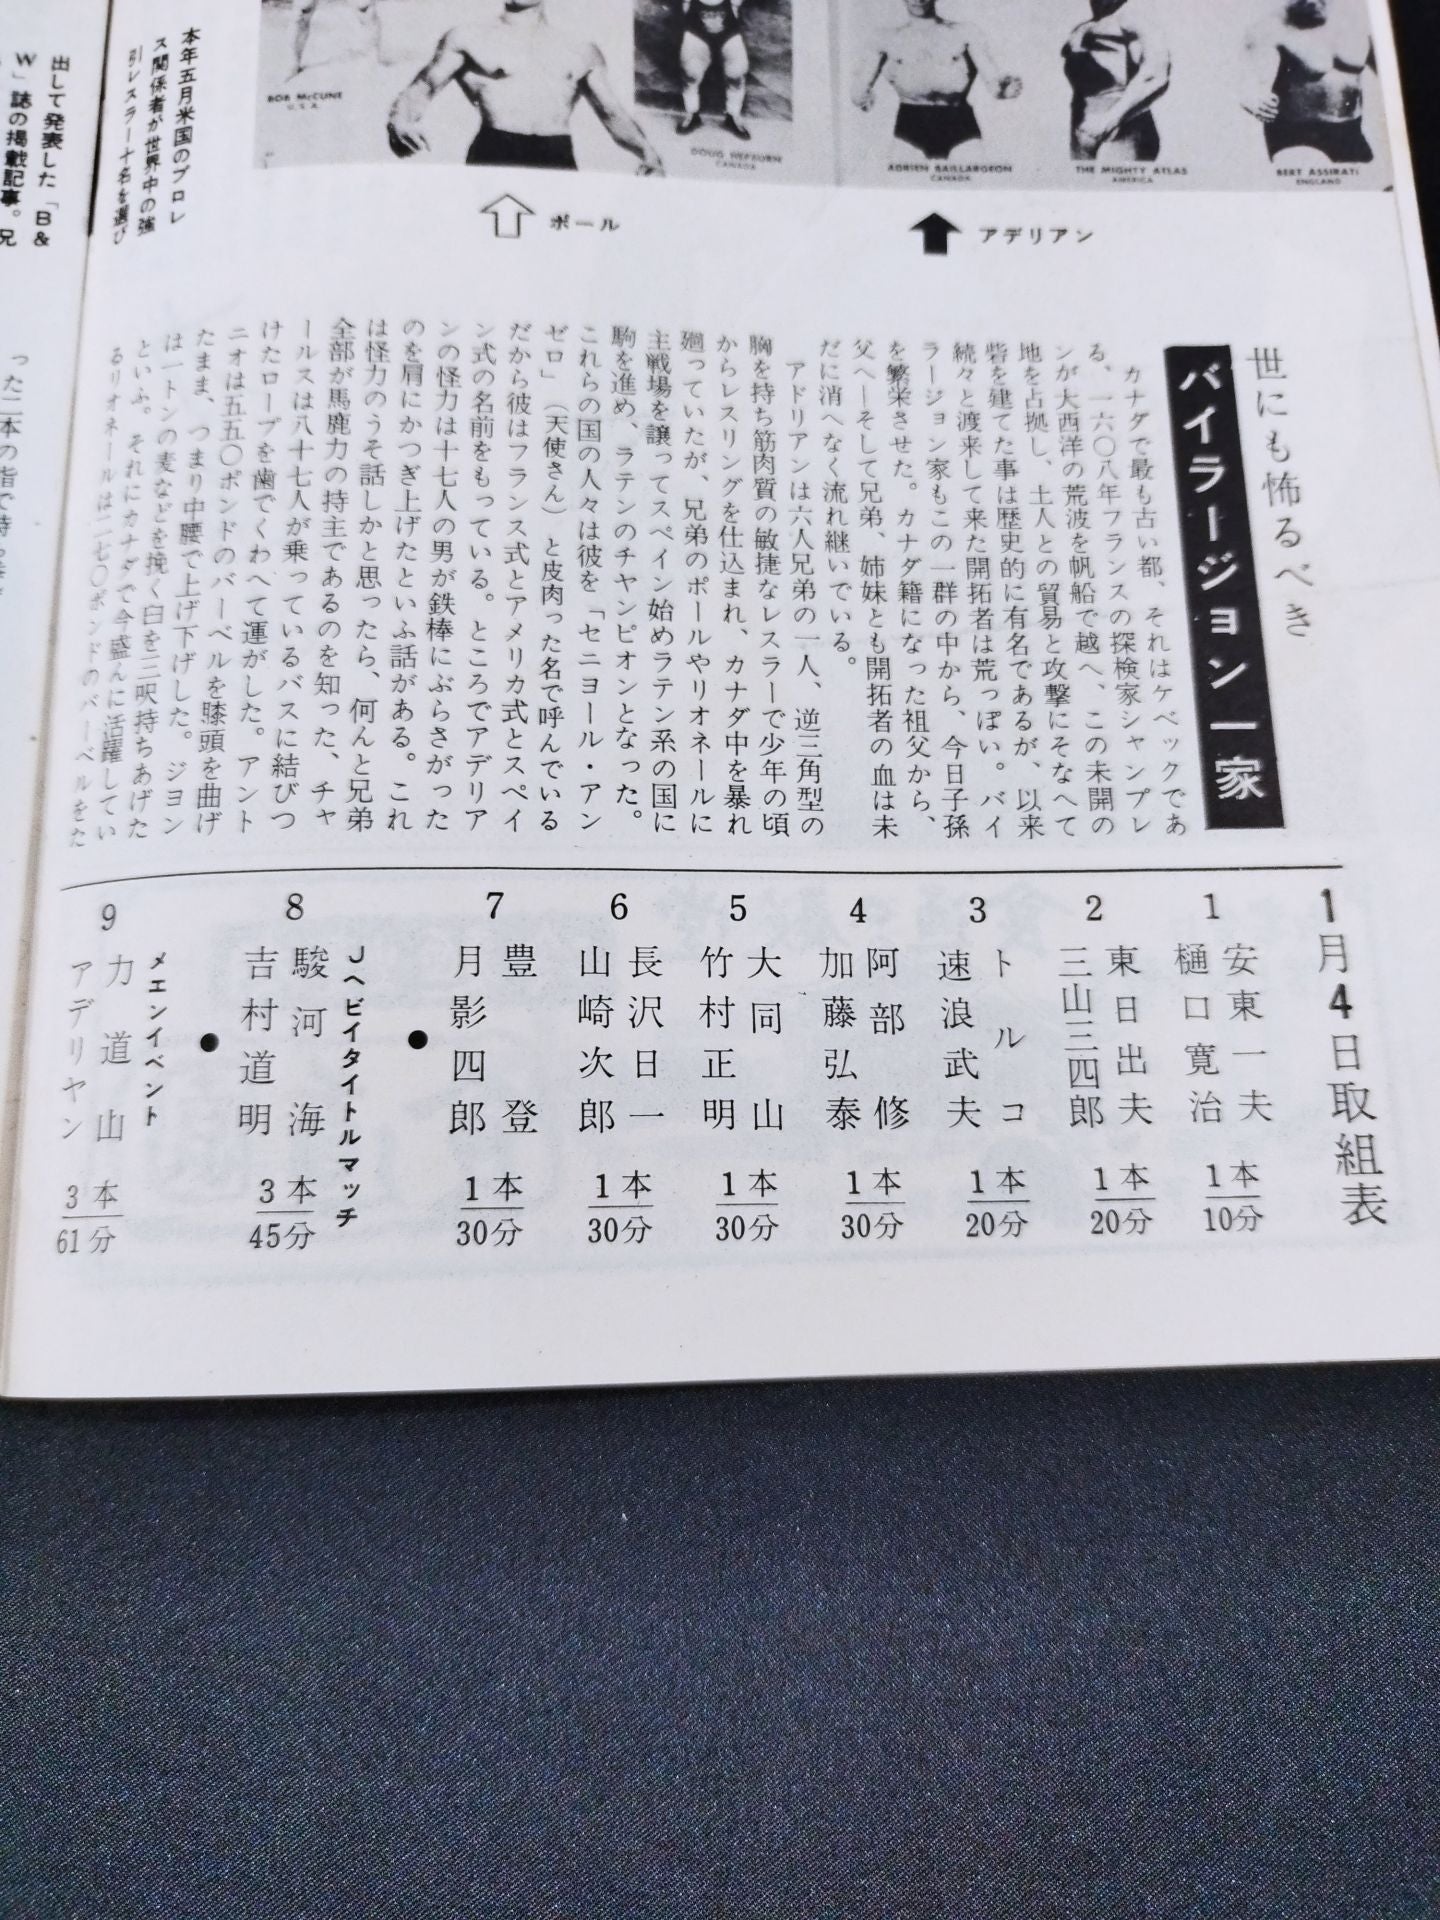 BOB McCUNE
U.S.A.
DOUG HEPBURN
CANADA
ADRIEN BAILLARGEON
CANADA
THE MIGHTY ATLAS
AMERICA
BERT ASSIRATI
ENGLAND
ポール
アデリアン
本年五月米国のプロレ
ス関係者が世界中の強
引レスラー十名を選び
出して発表した「B&
W」誌の掲載記事。兄
世にも怖るべき
バイラージョン一家
カナダで最も古い都、それはケベックであ
る、一六〇八年フランスの探検家シャンプレ
ンが大西洋の荒波を帆船で越へ、この未開の
地を占拠し、土人との貿易と攻撃にそなへて
砦を建てた事は歴史的に有名であるが、以来
続々と渡来して来た開拓者は荒っぽい。バイ
ラージョン家もこの一群の中から、今日子孫
を繁栄させた。カナダ籍になった祖父から、
父へ―そして兄弟、姉妹とも開拓者の血は未
だに消へなく流れ継いでいる。
アドリアンは六人兄弟の一人、逆三角型の
胸を持ち筋肉質の敏捷なレスラーで少年の頃
からレスリングを仕込まれ、カナダ中を暴れ
廻っていたが、兄弟のポールやリオネールに
主戦場を譲ってスペイン始めラテン系の国に
駒を進め、ラテンのチャンピオンとなった。
これらの国の人々は彼を「セニョール・アン
ゼロ」（天使さん）と皮肉った名で呼んでいる
だから彼はフランス式とアメリカ式とスペイ
ン式の名前をもっている。ところでアデリア
ンの怪力は十七人の男が鉄棒にぶらさがった
のを肩にかつぎ上げたといふ話がある。これ
は怪力のうそ話しかと思ったら、何んと兄弟
全部が馬鹿力の持主であるのを知った、チャ
ールスは八十七人が乗っているバスに結びつ
けたロープを歯でくわへて運がした。アント
ニオは五五〇ポンドのバーベルを膝頭を曲げ
たまま、つまり中腰で上げ下げした。ジヨン
は一トンの麦などを挽く臼を三呎持ちあげた
といふ。それにカナダで今盛んに活躍してい
るリオネールは二七〇ポンドのバーベルをた
1月4日取組表
1 安東一夫 樋口寛治 1本 10分
2 東日出夫 三山三四郎 1本 20分
3 トルコ 速浪武夫 1本 20分
4 阿部修 加藤弘泰 1本 30分
5 大同山 竹村正明 1本 30分
6 長沢日一 山崎次郎 1本 30分
7 豊登 月影四郎 1本 30分
●
Jヘビイタイトルマッチ
8 駿河海 吉村道明 3本 45分
●
メエンイベント
9 力道山 アデリヤン 3本 61分